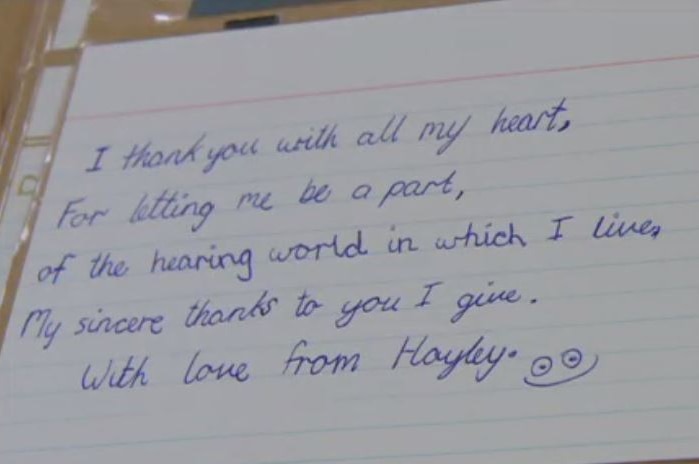 I thank you with all my heart,
For letting me be a part,
of the hearing world in which I live,
My sincere thanks to you I give.
With love from Hayley.